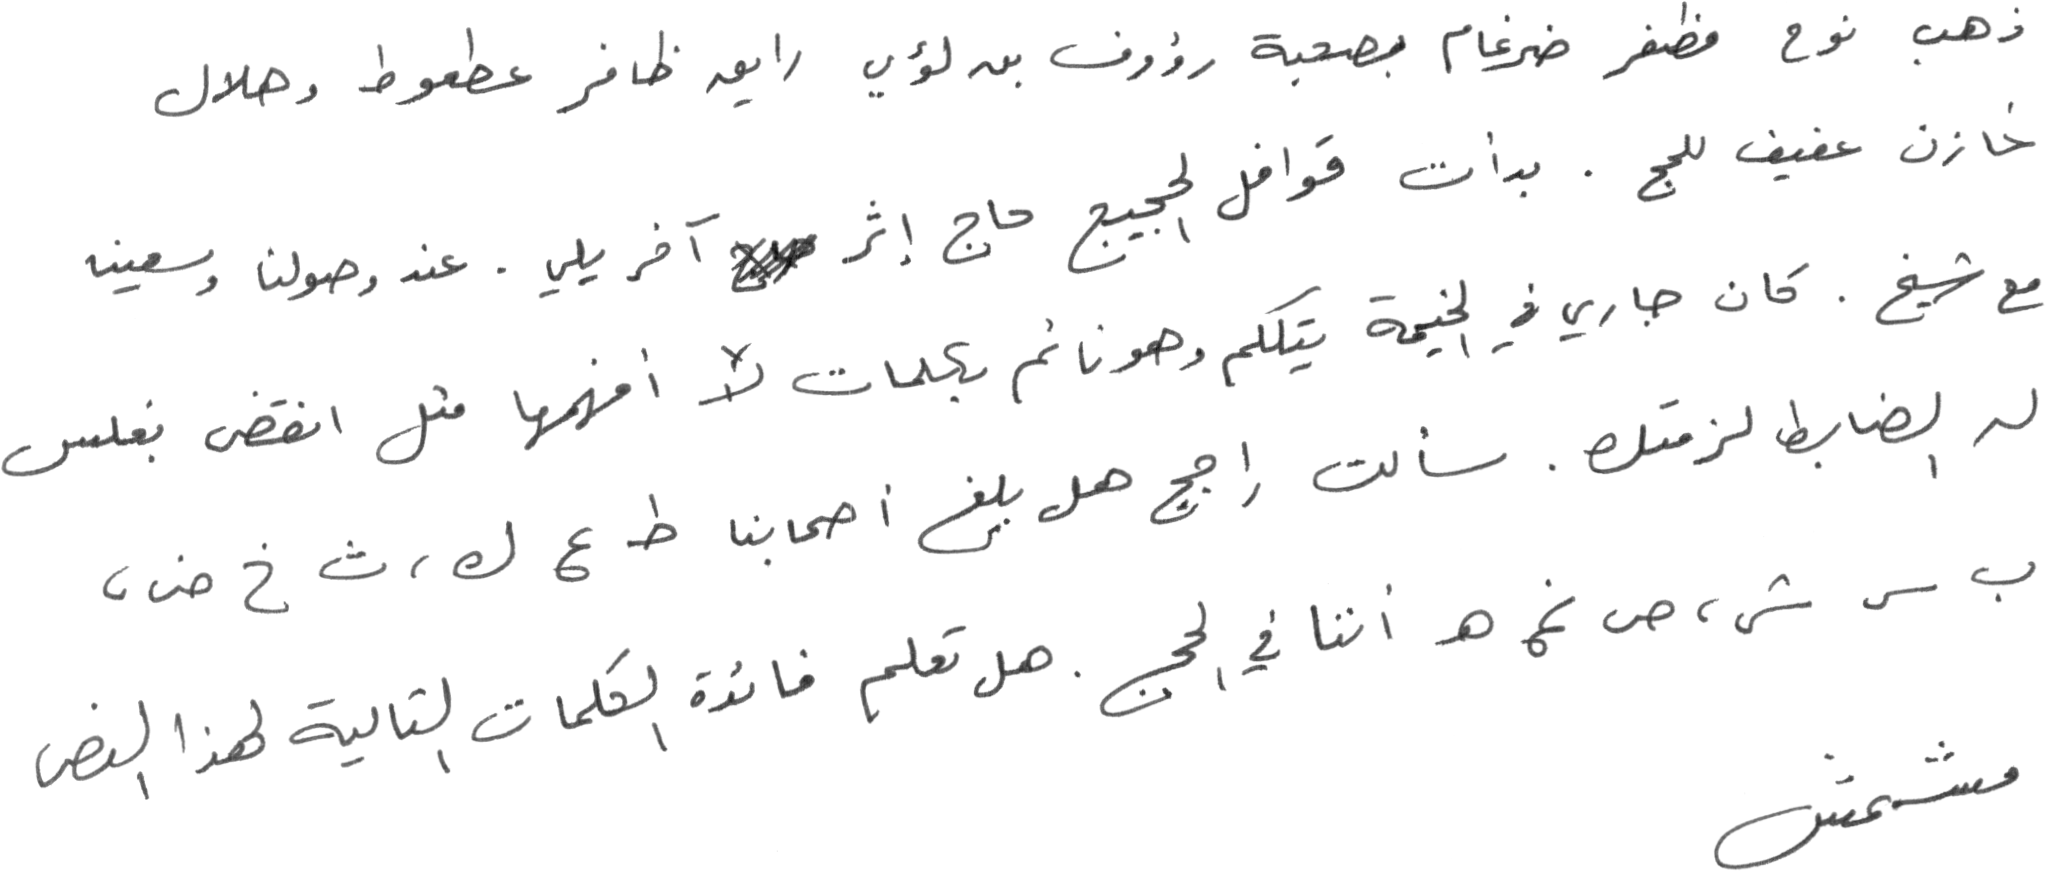 ذهب نوح مظفر ضرغام بصحبة رؤوف بن لؤي رايق ظافر عطعوط وهلال
خازن عفيف للحج . بدأت قوافل الحجيج حاج إثر آخر يلبي . عند وصولنا وسعينا
مع شيخ . كان جاري في الخيمة يتكلم وهو نائم بكلمات لا أفهمها مثل انقض بغلس
له الضابط لزمتك . سألت راجح هل بلغ أصحابنا ط ع ك ، ث خ ض ،
ب س ش ، ص غ هـ أننا في الحج . هل تعلم فائدة الكلمات التالية لهذا النص
مشمش